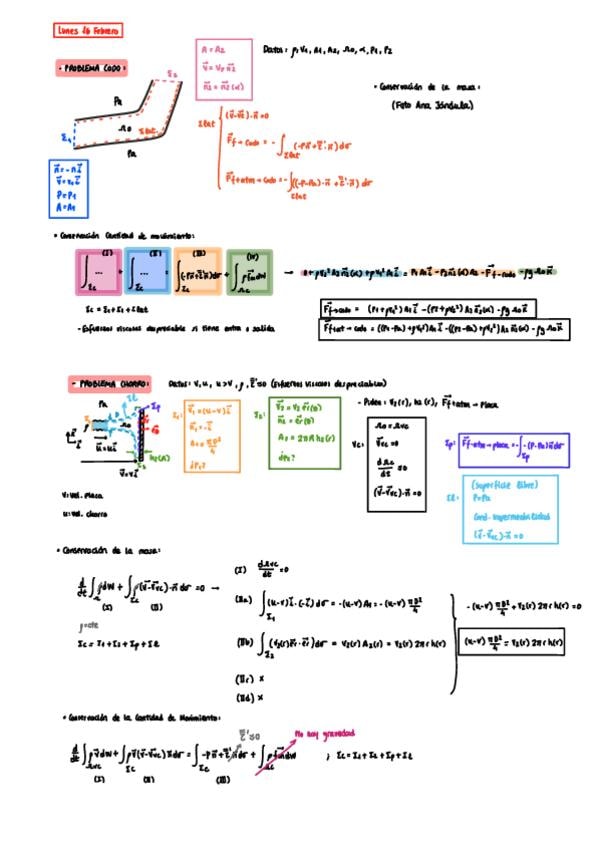 Lunes 10 Febrero
- PROBLEMA CODO:
A = A₂
v⃗ = V₂ n⃗₂
n⃗₂ = n⃗₂(α)
Datos: ρ, V₁, A₁, A₂, Ω₀, α, P₁, P₂
- Conservación de la masa:
(Foto Ana Jándula)
Σ₂
Pa
Ω₀
Σlat
Σ₁
Pa
n⃗ = -n i⃗
v⃗ = v₁ i⃗
P = P₁
A = A₁
Σlat
(v⃗-v⃗c)·n⃗ = 0
F⃗f→codo = -∫Σlat (-Pn⃗+τ⃗'·n⃗) dσ
F⃗f+atm→codo = -∫Σlat ((-P-Pa)·n⃗ + τ⃗'·n⃗) dσ
• Conservación Cantidad de movimiento:
(I) (II) (III) (IV)
∫Σc ... + ∫Σc ... = ∫Σc (-Pn⃗+τ⃗'n⃗)dσ + ∫Ωc ρf⃗m dW → 0 + ρV₂² A₂ n⃗₂(α) + ρV₁² A₁ i⃗ = P₁ A₁ i⃗ - P₂ n⃗₂(α) A₂ - F⃗f→codo - ρg Ω₀ k⃗
Σc = Σ₁ + Σ₂ + Σlat
- Esfuerzos viscosos despreciable si tiene entra o salida
F⃗f→codo = (P₁+ρV₁²) A₁ i⃗ - (P₂+ρV₂²) A₂ n⃗₂(α) - ρg Ω₀ k⃗
F⃗f+at→codo = ((P₁-Pa)+ρV₁²) A₁ i⃗ - ((P₂-Pa)+ρV₂²) A₂ n⃗₂(α) - ρg Ω₀ k⃗
- PROBLEMA CHORRO:
Datos: V, u, u>V, ρ, τ⃗'≃0 (Esfuerzos viscosos despreciables)
Pa
Σℓ
Σp
u⃗ = u i⃗
h₂(r)
v⃗ = v i⃗
Σ₁:
v⃗₁ = (u-v) i⃗
n⃗₁ = -i⃗
A₁ = πD²/4
¿P₁?
Σ₂:
v⃗₂ = v₂ e⃗r(θ)
n⃗₂ = e⃗r(θ)
A₂ = 2πR h₂(r)
¿P₂?
- Piden: V₂(r), h₂(r), F⃗f+atm→placa
Vc:
Ω₀ = Ωvc
v⃗vc = 0
dΩc/dt = 0
(v⃗-v⃗vc)·n⃗ = 0
Σp:
F⃗f+atm→placa = -∫Σp -(P-Pa) n⃗ dσ
Σℓ:
(superficie libre)
P = Pa
Cond. impermeabilidad
(v⃗-v⃗vc)·n⃗ = 0
V: vel. placa
u: vel. chorro
• Conservación de la masa:
d/dt ∫ρdW + ∫Σc ρ(v⃗-v⃗vc)·n⃗ dσ = 0 →
(I) (II)
ρ=cte
Σc = Σ₁ + Σ₂ + Σp + Σℓ
(I) dΩvc/dt = 0
(IIa) ∫Σ₁ (u-v) i⃗·(-i⃗) dσ = -(u-v) A₁ = -(u-v) πD²/4
(IIb) ∫Σ₂ (v₂(r) e⃗r·e⃗r) dσ = v₂(r) A₂(r) = v₂(r) 2πr h(r)
(IIc) ×
(IId) ×
-(u-v) πD²/4 + v₂(r) 2πr h(r) = 0
(u-v) πD²/4 = v₂(r) 2πr h(r)
• Conservación de la Cantidad de Movimiento:
τ⃗'≃0
No hay gravedad
d/dt ∫Ωvc ρv⃗ dW + ∫Σc ρv⃗(v⃗-v⃗vc)·n⃗ dσ = ∫Σc -Pn⃗ + τ⃗'n⃗ dσ + ∫Ωc ρf⃗m dW ; Σc = Σ₁ + Σ₂ + Σp + Σℓ
(I) (II) (III)